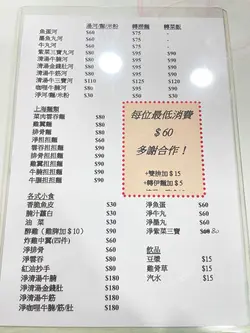 湯河/麵/米粉 轉撈麵 轉菜飯
魚蛋河 $60 $75 -
墨魚丸河 $60 $75 -
牛丸河 $60 $75 -
紫菜三寶丸河 $80 $90 -
清湯牛腩河 $80 $90 $90
清湯金錢肚河 $80 $90 $90
清湯牛筋河 $80 $90 $90
清湯牛三寶河 $110 $125 $120
咖喱牛腩河 $80 $90 $90
淨河/麵/米粉 $30
上海麵類
菜肉雲吞麵 $80
雞翼麵 $80
排骨麵 $80
淨担担麵 $60
雲吞担担麵 $90
雞翼担担麵 $90
排骨担担麵 $90
牛腩担担麵 $90
牛𦟌担担麵 $90
每位最低消費
$60
多謝合作！
+雙排加$15
+轉伊麵加$5
各式小食
香脆魚皮 $30
腩汁蘿白 $30
油 菜 $30
醉雞（雞髀加$10） $50
炸雞中翼(四件) $60
淨排骨 $60
淨雲吞 $60
紅油抄手 $60
淨清湯牛腩 $80
淨清湯金錢肚 $80
淨清湯牛筋 $80
淨咖喱牛腩/筋/肚 $80
淨魚蛋 $60
淨牛丸 $60
淨墨丸 $60
淨紫菜三寶 80
飲品
豆漿 $15
雞骨草 $15
汽水 $15